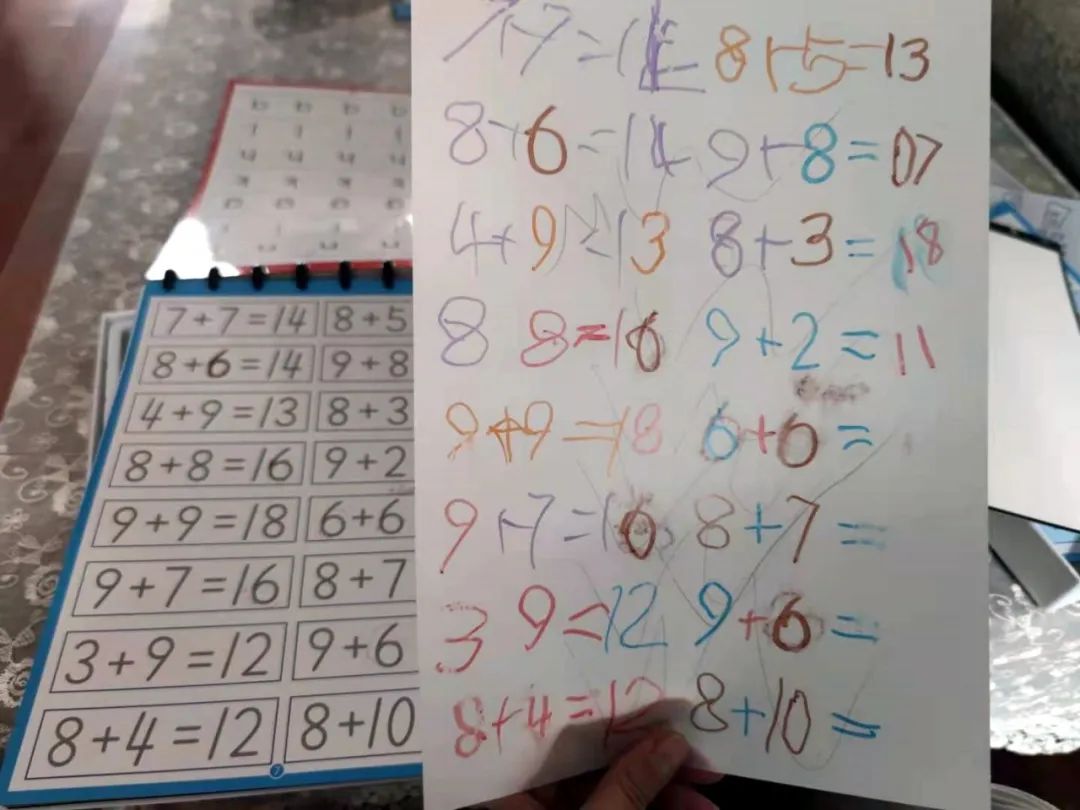 7+7=14
8+5
8+6=14
9+8
4+9=13
8+3
8+8=16
9+2
9+9=18
6+6
9+7=16
8+7
3+9=12
9+6
8+4=12
8+10
7
8+5=13
8+6=14
9+8=07
4+9=13
8+3=18
8 8=16
9+2=11
9+9=18
6+6=
9+7=16
8+7=
3 9=12
9+6=
8+4=12
8+10=